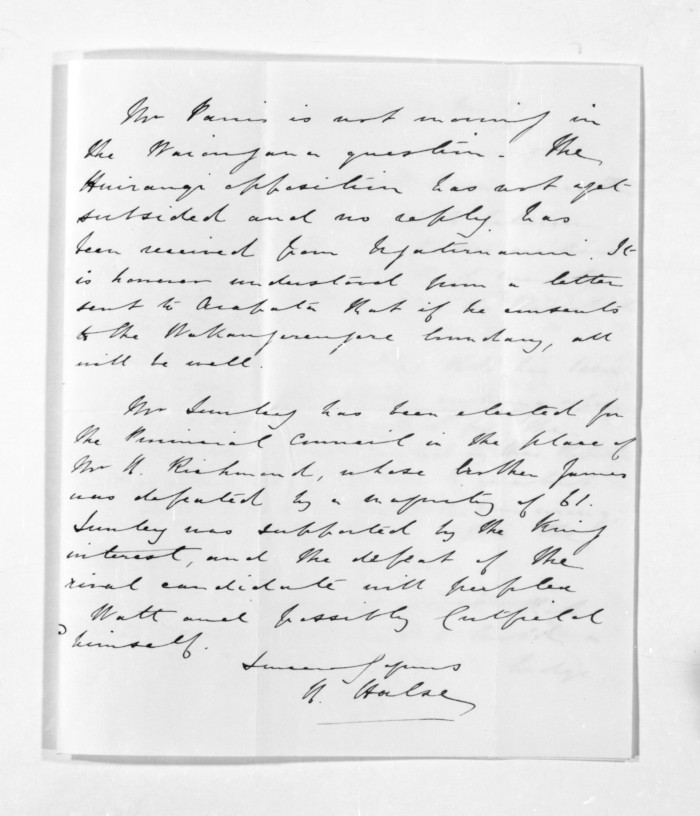 Mr Parris is not moving in
the Waiongana question. The
Huirangi opposition has not yet
subsided and no reply has
been received from Ngatimaru. It
is however understood from a letter
sent to Arapata that if he consents
to the boundary, all
will be well.
Mr has been elected for
the Provincial Council in the place of
Mr H. Richmond, whose brother James
was defeated by a majority of 61.
was supported by the King
interest, and the defeat of the
rival candidate will perplex
Watt and possibly Cutfield
himself.
Sincerely yours
H. Halse